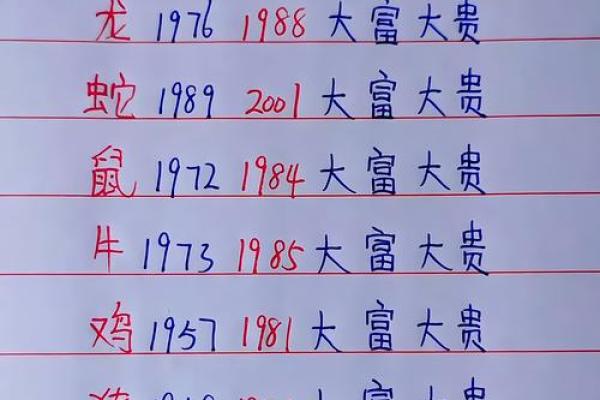 龙 1976 1988 大富大贵
蛇 1989 2001 大富大贵
鼠 1972 1984 大富大贵
牛 1973 1985 大富大贵
鸡 1957 1981 大富大贵
大富大贵